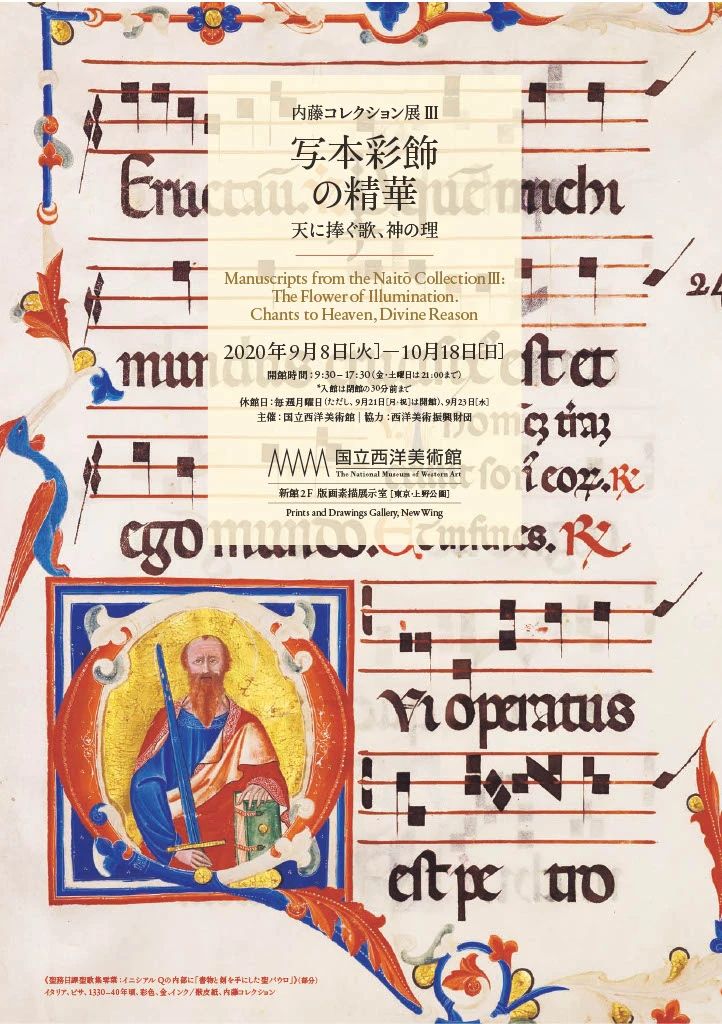 内藤コレクション展 III
写本彩飾
の精華
天に捧ぐ歌、神の理
Manuscripts from the Naitō Collection III:
The Flower of Illumination.
Chants to Heaven, Divine Reason
2020年9月8日[火]—10月18日[日]
開館時間：9:30–17:30(金・土曜日は21:00まで)
*入館は閉館の30分前まで
休館日：毎週月曜日(ただし、9月21日[月・祝]は開館)、9月23日[水]
主催：国立西洋美術館｜協力：西洋美術振興財団
国立西洋美術館
The National Museum of Western Art
新館2F 版画素描展示室 [東京・上野公園]
Prints and Drawings Gallery, New Wing
Eructaū. quē michi
mun st et
cor. R
ego mundo. Et infines. R
Vi operatus
est pe tro
《聖務日課聖歌集零葉：イニシアルQの内部に「書物と剣を手にした聖パウロ」》(部分)
イタリア、ピサ、1330–40年頃、彩色、金、インク/獣皮紙、内藤コレクション